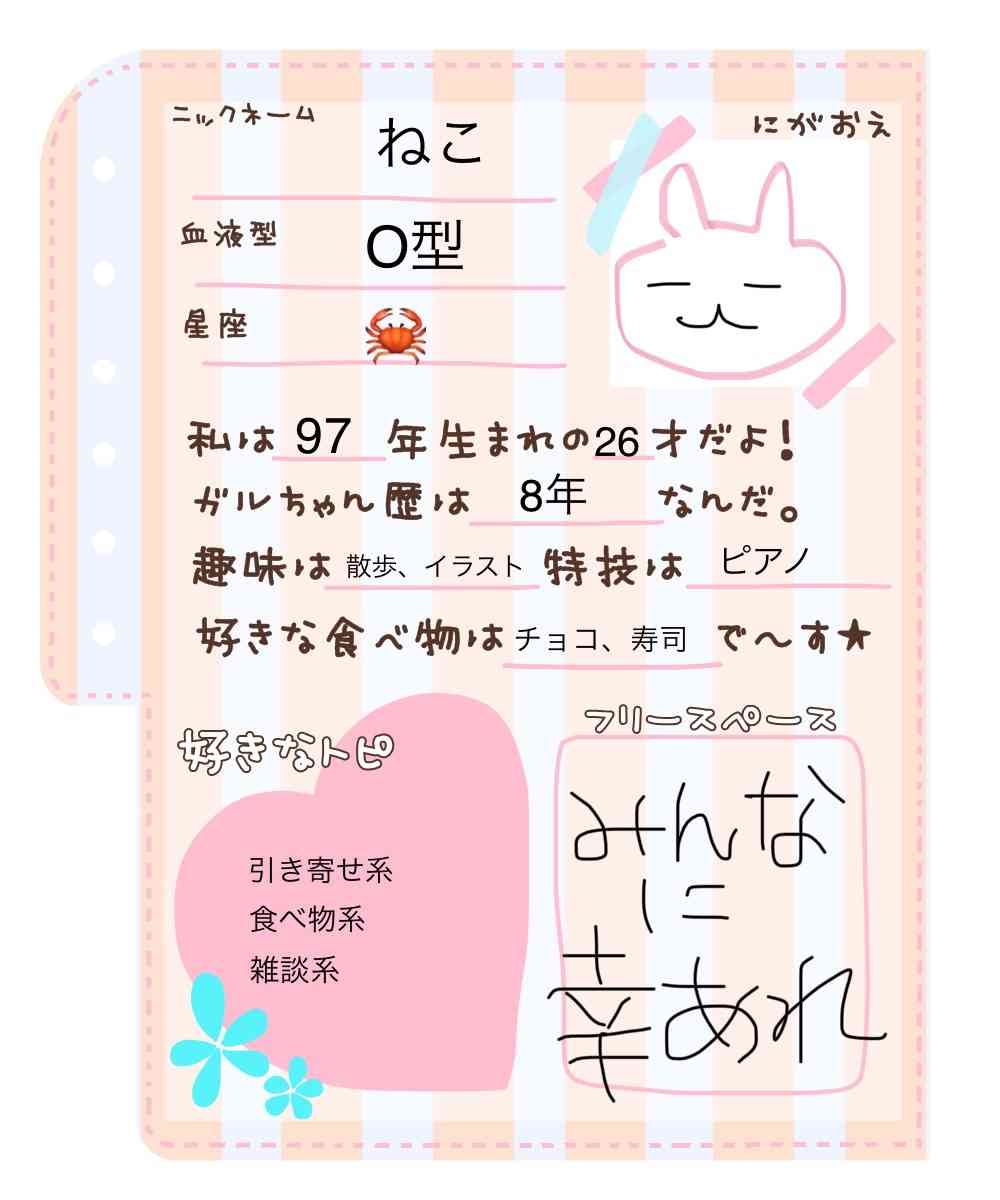 ニックネーム ねこ
にがおえ
血液型 O型
星座 🦀
私は 97 年生まれの 26 才だよ！
ガルちゃん歴は 8年 なんだ。
趣味は 散歩、イラスト 特技は ピアノ
好きな食べ物は チョコ、寿司 で〜す★
好きなトピ
引き寄せ系
食べ物系
雑談系
フリースペース
みんな
に
幸あれ